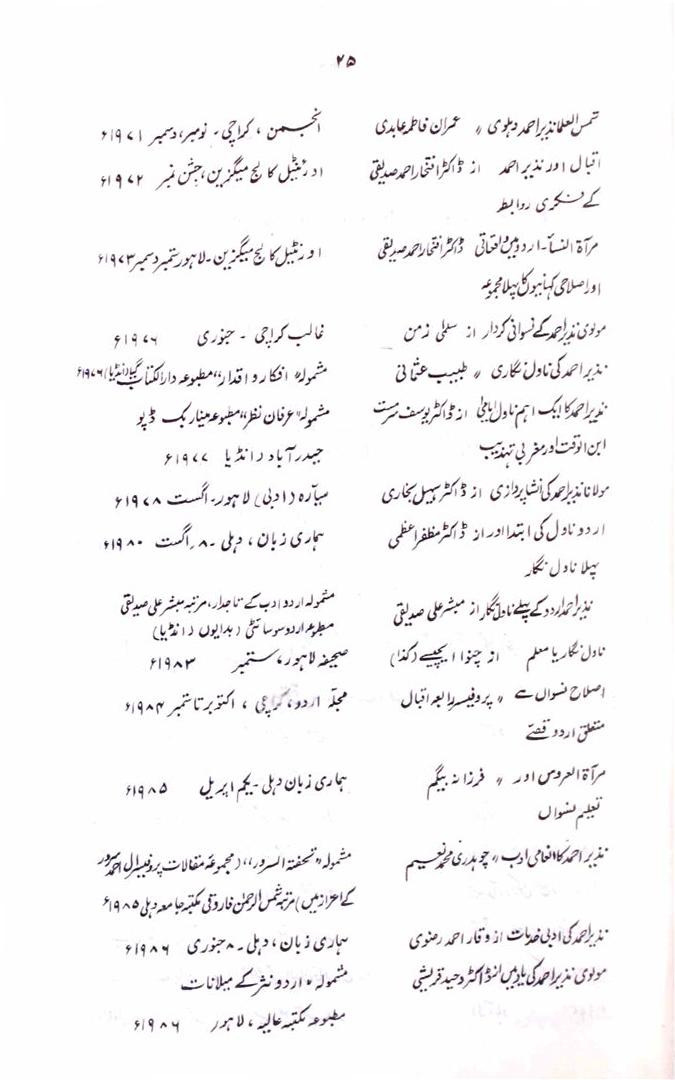 ۲۵
شمس العلما نذیر احمد دہلوی 〃 عمران فاطمہ عابدی انجمن ، کراچی ۔ نومبر، دسمبر ۱۹۷۱ء
اقبال اور نذیر احمد از ڈاکٹر افتخار احمد صدیقی اورنٹیل کالج میگزین، جشن نمبر ۱۹۷۲ء
کے فکری روابط
مرآۃ النسأ۔ اردو میں واقعاتی ڈاکٹر افتخار احمد صدیقی اورنٹیل کالج میگزین ۔ لاہور ستمبر دسمبر ۱۹۷۳ء
اور اصلاحی کہانیوں کا پہلا مجموعہ
مولوی نذیر احمد کے نسوانی کردار از سلمٰی زمن غالب کراچی ۔ جنوری ۱۹۷۶ء
نذیر احمد کی ناول نگاری 〃 طبیب عثمانی مشمولہ "افکار و اقدار" مطبوعہ دارالکتاب گیا (انڈیا) ۱۹۷۶ء
نذیر احمد کا ایک اہم ناول ایامیٰ از ڈاکٹر یوسف سرمست مشمولہ "عرفان نظر" مطبوعہ مینار بک ڈپو
ابن الوقت اور مغربی تہذیب حیدرآباد (انڈیا ۱۹۷۷ء
مولانا نذیر احمد کی انشا پردازی از ڈاکٹر سہیل بخاری سیارہ (ادبی) لاہور ۔ اگست ۱۹۷۸ء
اردو ناول کی ابتدا اور از ڈاکٹر مظفر اعظمی ہماری زبان ، دہلی ۔ ۸ ، اگست ۱۹۸۰ء
پہلا ناول نگار
نذیر احمد اردو کے پہلے ناول نگار از مبشر علی صدیقی مشمولہ اردو ادب کے تاجدار، مرتبہ مبشر علی صدیقی
مطبوعہ اردو سوسائٹی (بدایوں (انڈیا)
ناول نگار یا معلم از چنوا ایچیبے (کذا) صحیفہ لاہور، ستمبر ۱۹۸۳ء
اصلاح نسواں سے 〃 پروفیسر رابعہ اقبال مجلّہ اردو، کراچی ، اکتوبر تا ستمبر ۱۹۸۴ء
متعلق اردو قصّے
مرآۃ العروس اور 〃 فرزانہ بیگم ہماری زبان دہلی ۔ یکم اپریل ۱۹۸۵ء
تعلیم نسواں
نذیر احمد کا انعامی ادب 〃 چوہدری محمد نعیم مشمولہ "تحفۃ السرور" (مجموعۂ مقالات پروفیسر آل احمد سرور
کے اعزاز میں) مرتبہ شمس الرحمٰن فاروقی مکتبہ جامعہ دہلی ۱۹۸۵ء
نذیر احمد کی ادبی خدمات از وقار احمد رضوی ہماری زبان، دہلی ۔ ۸ جنوری ۱۹۸۶ء
مولوی نذیر احمد کی یاد میں از ڈاکٹر وحید قریشی مشمولہ 〃 اردو نثر کے میلانات
مطبوعہ مکتبہ عالیہ ، لاہور ۱۹۸۶ء